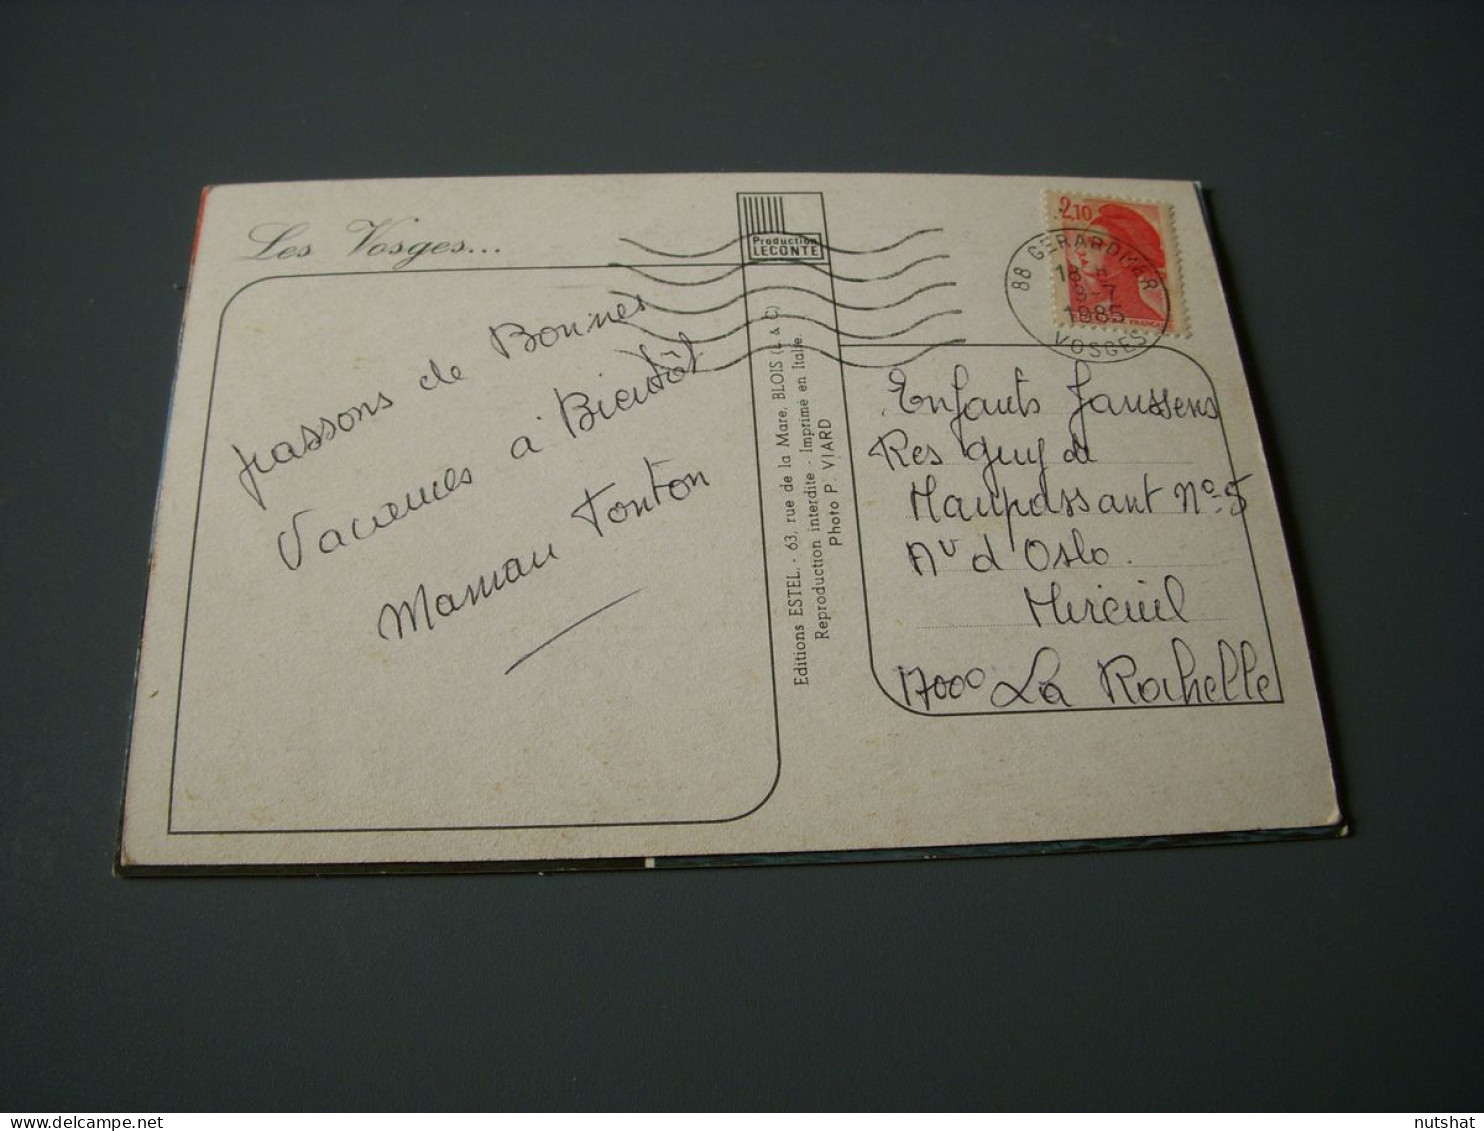 Les Vosges...
Production
LECONTE
2,10
88 GERARDMER
18 H
9-7
1985
VOSGES
FRANCE
passons de Bonnes
Vacances à Bientôt
Maman Tonton
Editions ESTEL. - 63, rue de la Mare, BLOIS (L & C)
Reproduction interdite - Imprimé en Italie.
Photo P. VIARD
Enfants Janssens
Res Guy de
Maupassant N° 5
Av d'Oslo.
Mireuil
17000 La Rochelle
delcampe.net
nutshat